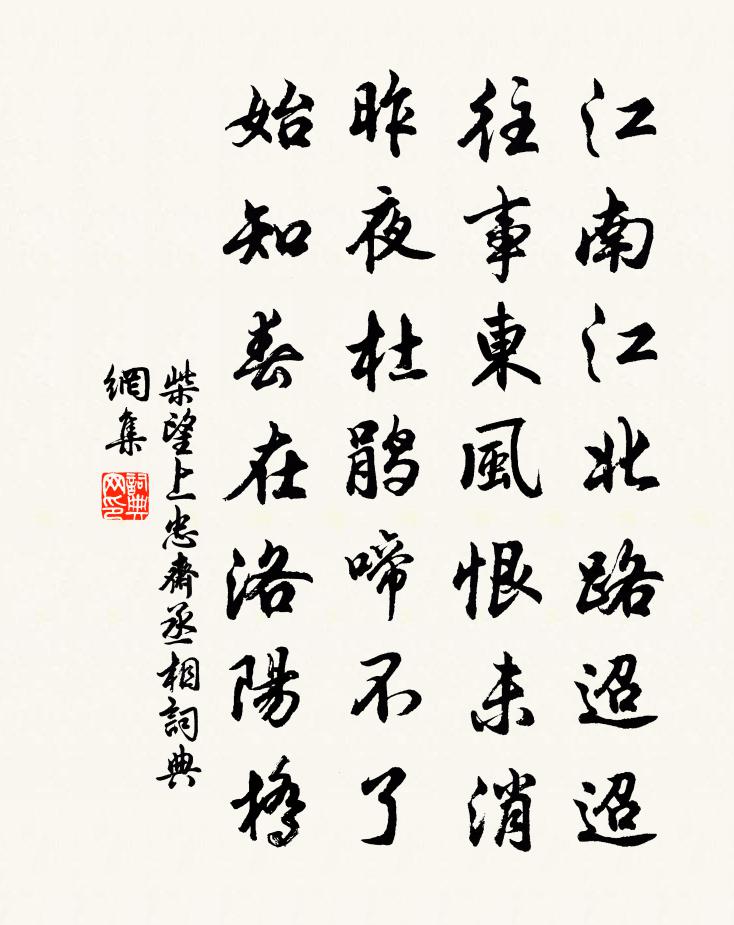 江南江北路迢迢
往事東風恨未消
昨夜杜鵑啼不了
始知春在洛陽橋
柴望上忠齋丞相詞典
網集
詞典
网印